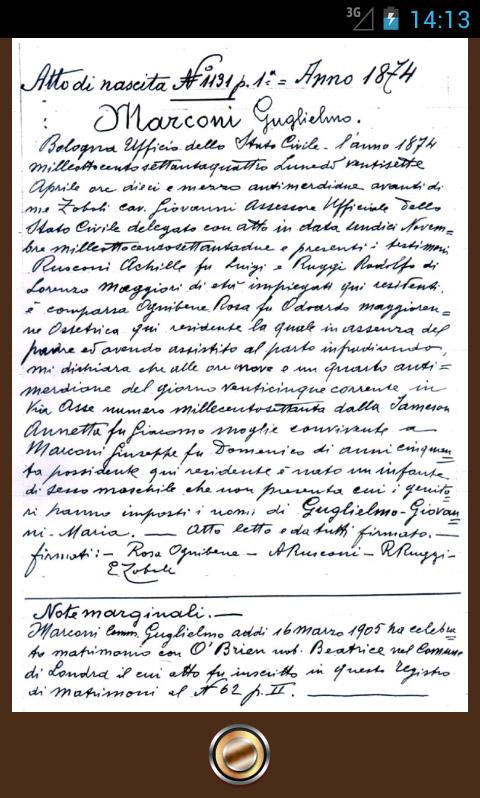 3G 14:13
Atto di nascita Nº 1131 p. 1ª = Anno 1874
Marconi Guglielmo.
Bologna Ufficio dello Stato Civile - l'anno 1874
milleottocentosettantaquattro Lunedì ventisette
Aprile ore dieci e mezzo antimeridiane avanti di
me Zoboli cav. Giovanni Assessore Ufficiale dello
Stato Civile delegato con atto in data undici Novem=
bre milleottocentosettantadue e presenti i testimoni
Rusconi Achille fu Luigi e Ruggi Rodolfo di
Lorenzo maggiori di età impiegati qui residenti,
è comparsa Ognibene Rosa fu Odoardo maggioren=
ne Ostetrica qui residente la quale in assenza del
padre ed avendo assistito al parto infradicendo,
mi dichiara che alle ore nove e un quarto anti=
merdiane del giorno venticinque corrente in
Via Asse numero millecentosettanta dalla Jameson
Annetta fu Giacomo moglie convivente a
Marconi Giuseppe fu Domenico di anni cinquan
ta possidente qui residente è nato un infante
di sesso maschile che non presenta cui i genito
ri hanno imposti i nomi di Guglielmo-Giovan
ni-Maria. — Atto letto e da tutti firmato. —
firmati: - Rosa Ognibene - A Rusconi - R. Ruggi -
Zoboli
Note marginali. —
Marconi Comm. Guglielmo addì 16 marzo 1905 ha celebra
to matrimonio con O'Brien Beatrice nel Comune
di Londra il cui atto fu inscritto in questo registro
di matrimoni al Nº 62 p. II.